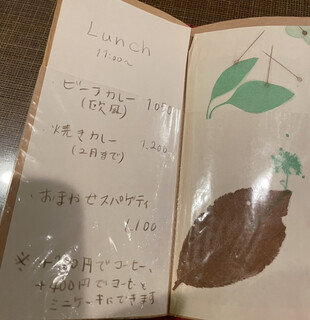 Lunch
11:00〜
・ビーフカレー 1.050
(欧風)
・焼きカレー 1.200
(2月まで)
・おまかせスパゲティ
1.100
※ +200円でコーヒー、
+400円でコーヒーと
ミニケーキにできます